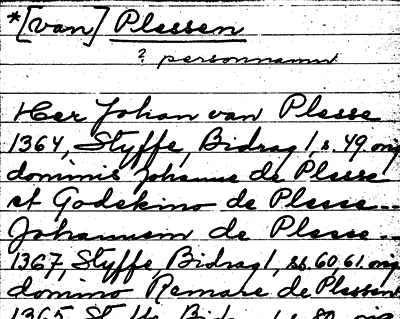 *[van] Plessen
? personnamn
Her Johan van Plesse
1364, Styffe, Bidrag 1, s. 49 orig
dominis Johanne de Plesse
et Godskino de Plesse...
Johannem de Plesse...
1367, Styffe, Bidrag 1, ss. 60, 61. orig
domino Remare de Plessen
1365 Styffe Bidrag 1 s. 80 orig